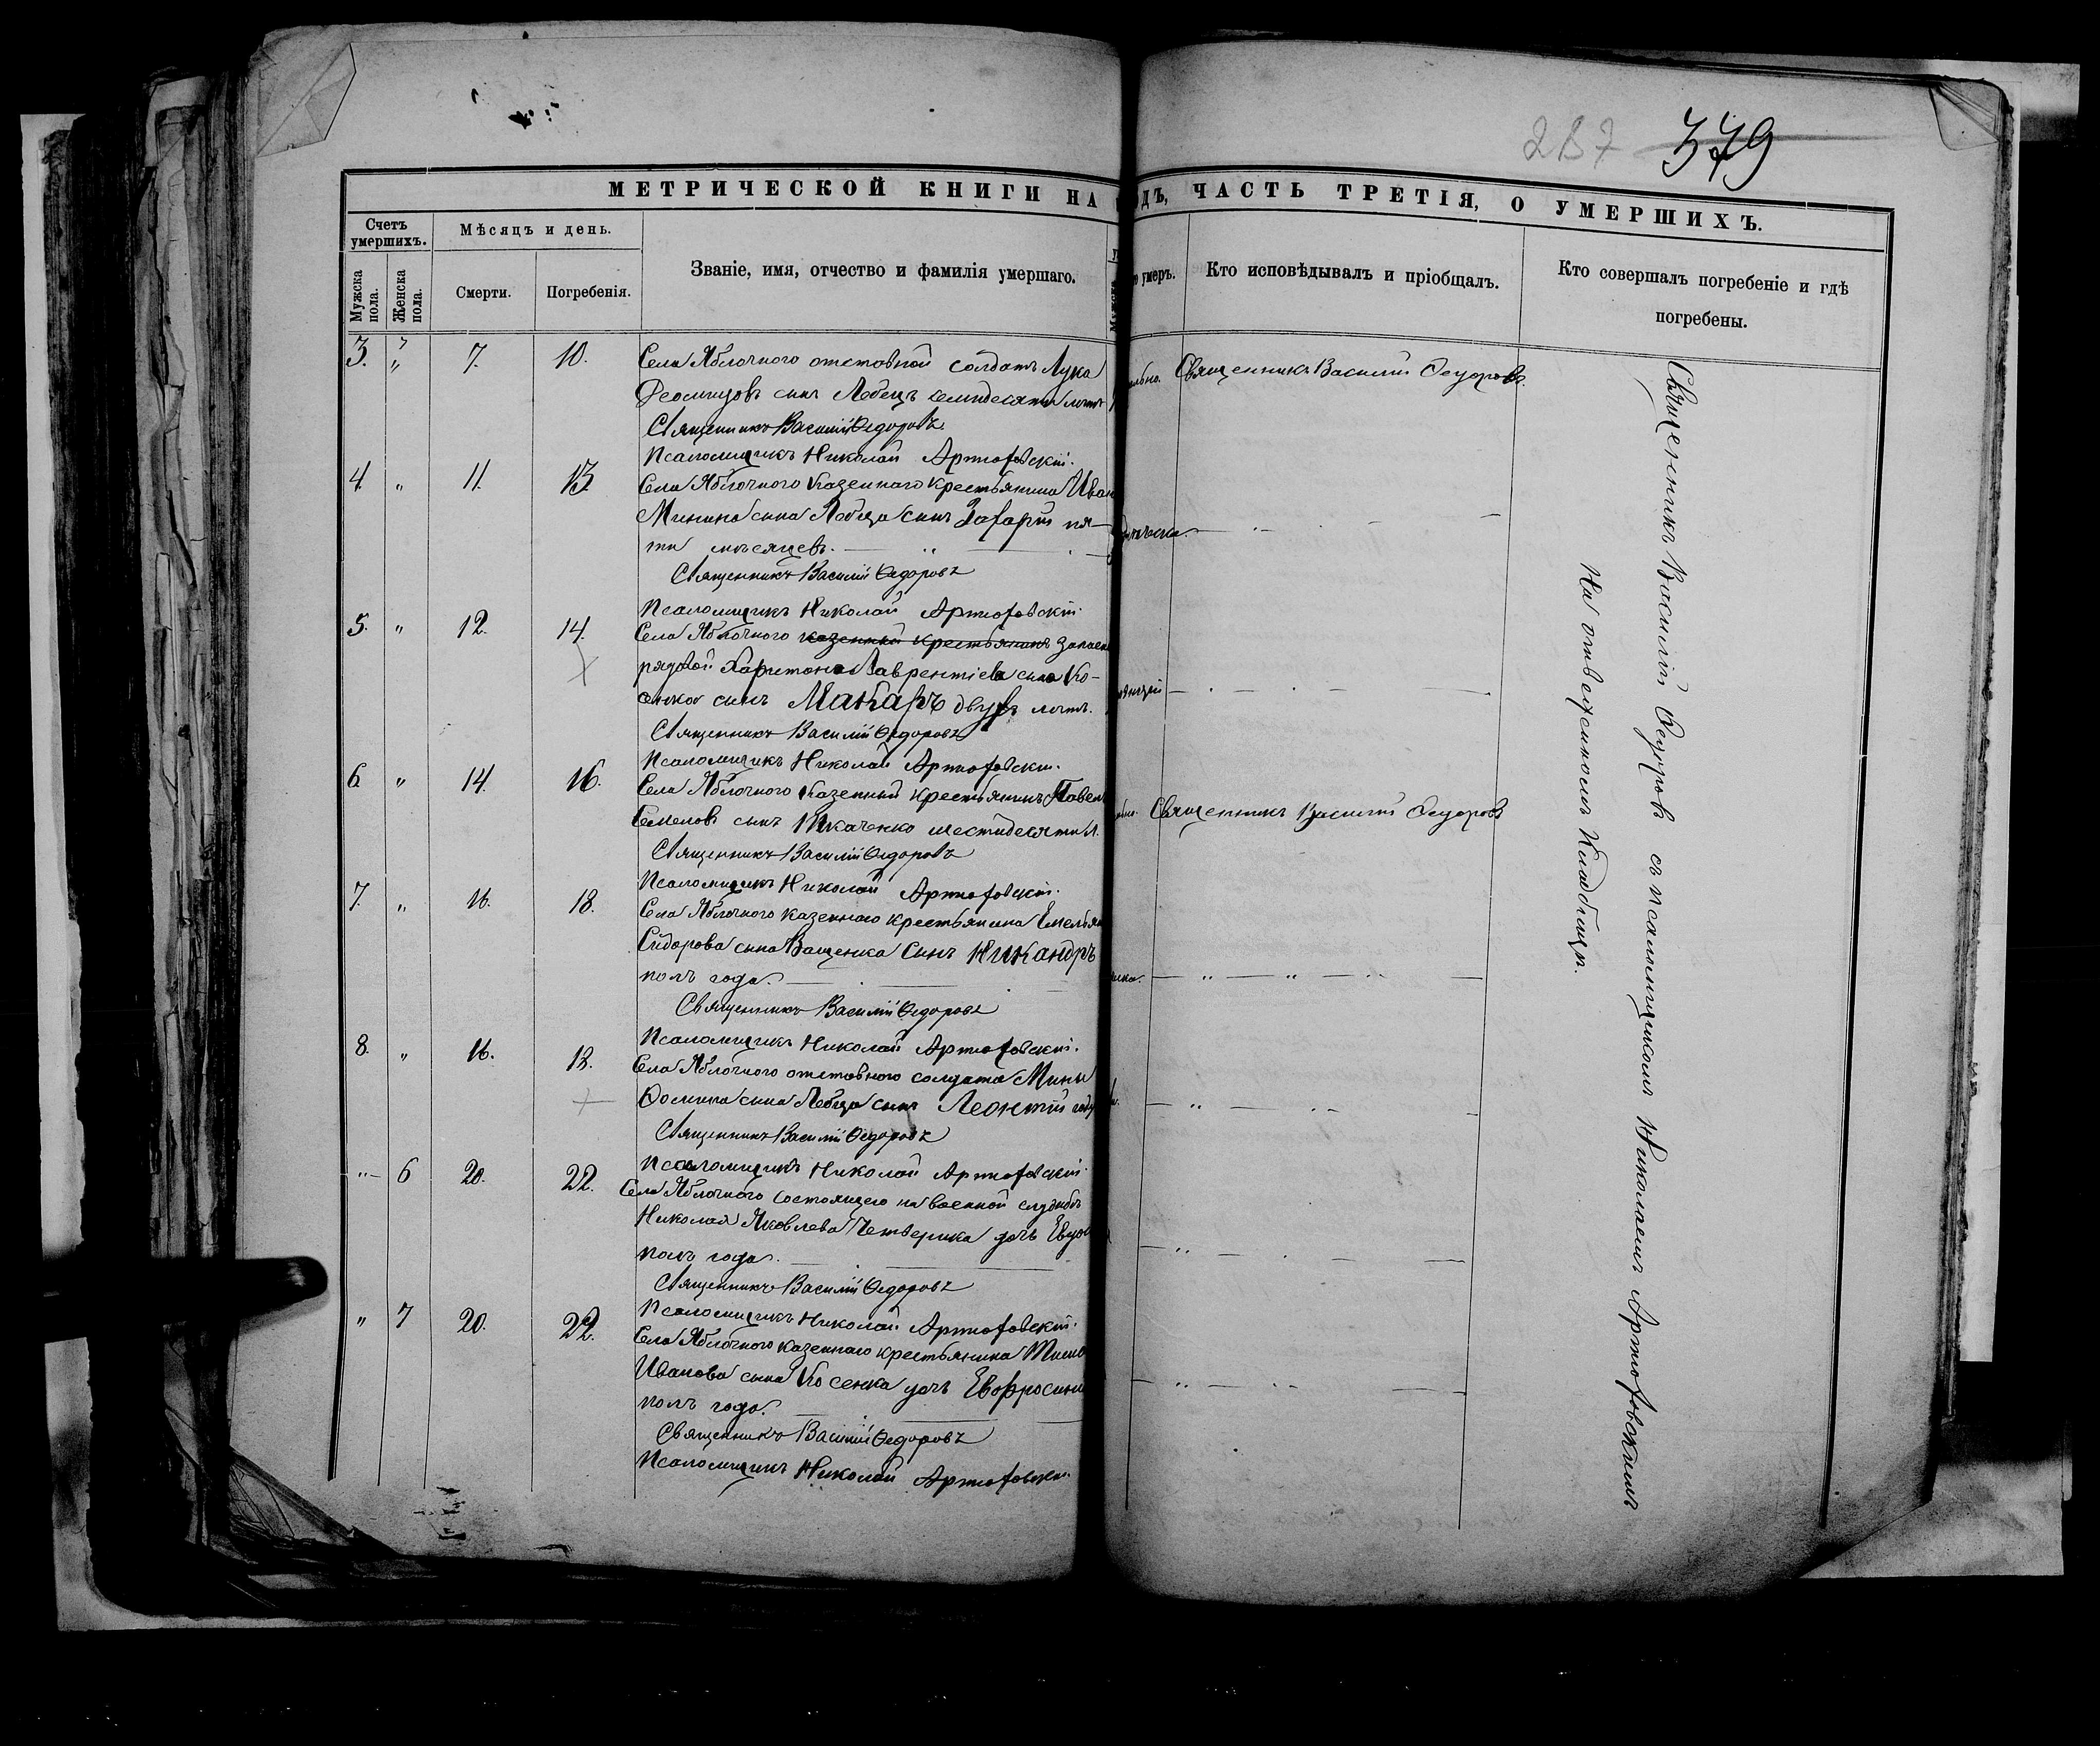 287 379
МЕТРИЧЕСКОЙ КНИГИ НА ДЪ, ЧАСТЬ ТРЕТІЯ, О УМЕРШИХЪ.
Счетъ умершихъ.
Мѣсяцъ и день.
Мужска пола.
Женска пола.
Смерти.
Погребенія.
Званіе, имя, отчество и фамилія умершаго.
умеръ.
Кто исповѣдывалъ и пріобщалъ.
Кто совершалъ погребеніе и гдѣ
погребены.
3. " 7. 10. Села Яблочного отставной солдатъ Лука
сынъ Лебецъ семидесяти лѣтъ
Священникъ Василій Ѳедоровъ
Псаломщикъ Николай Артюховскій.
Священникъ Василій Ѳедоровъ.
4. " 11. 13. Села Яблочного казеннаго крестьянина Иван
Минина сына Лебеца сынъ Захарій пя-
ти мѣсяцевъ.
Священникъ Василій Ѳедоровъ
Псаломщикъ Николай Артюховскій.
5. " 12. 14. Села Яблочного казенный крестьянинъ запасн
рядовой Харитона Лаврентіева сына Ко-
сенка сынъ Макаръ двухъ лѣтъ.
Священникъ Василій Ѳедоровъ
Псаломщикъ Николай Артюховскій.
6. " 14. 16. Села Яблочного казенный крестьянинъ Павел
сынъ Ткаченко шестидесяти л.
Священникъ Василій Ѳедоровъ
Псаломщикъ Николай Артюховскій.
Священникъ Василій Ѳедоровъ
7. " 16. 18. Села Яблочного казеннаго крестьянина Емельян
Сидорова сына Ващенка сынъ Никандръ
полъ года.
Священникъ Василій Ѳедоровъ
Псаломщикъ Николай Артюховскій.
8. " 16. 18. Села Яблочного отставного солдата Мины
Ѳомина сына Лебеца сынъ Леонтій
Священникъ Василій Ѳедоровъ
Псаломщикъ Николай Артюховскій.
" 6 20. 22. Села Яблочного состоящего на военной службѣ
Николая Яковлева Четверика дочь Евдок
полъ года.
Священникъ Василій Ѳедоровъ
Псаломщикъ Николай Артюховскій.
" 7 20. 22. Села Яблочного казеннаго крестьянина
Иванова сына Косенка дочь Евфросин
полъ года.
Священникъ Василій Ѳедоровъ
Псаломщикъ Николай Артюховскій.
Священникъ Василій Ѳедоровъ съ псаломщикомъ Николаемъ Артюховскимъ
На отведенномъ кладбищѣ.